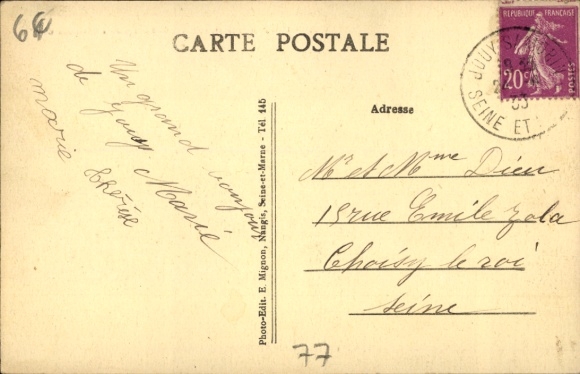 6€
CARTE POSTALE
REPUBLIQUE FRANÇAISE
20c
JOUY S
SEINE ET
33
Un grand bonjour
de Jouy
Marie
marie thérèse
Photo-Edit. E. Mignon, Nangis, Seine-et-Marne - Tél 145
Adresse
Mr et Mme Dieu
15 rue Emile zola
Choisy le roi
Seine
77